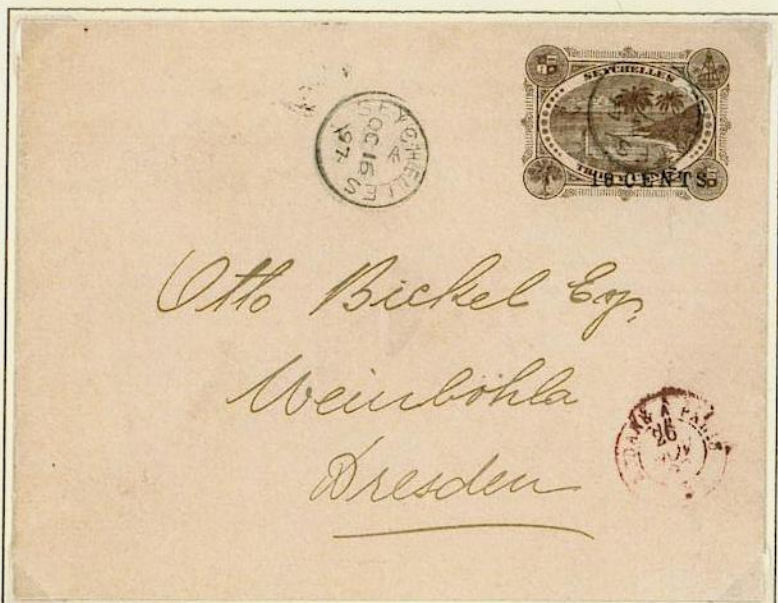 SEYCHELLES
18 CENTS
SEYCHELLES
A
OC 16
97
Otto Bickel Esq.
Weinböhla
Dresden
A PARIS
26